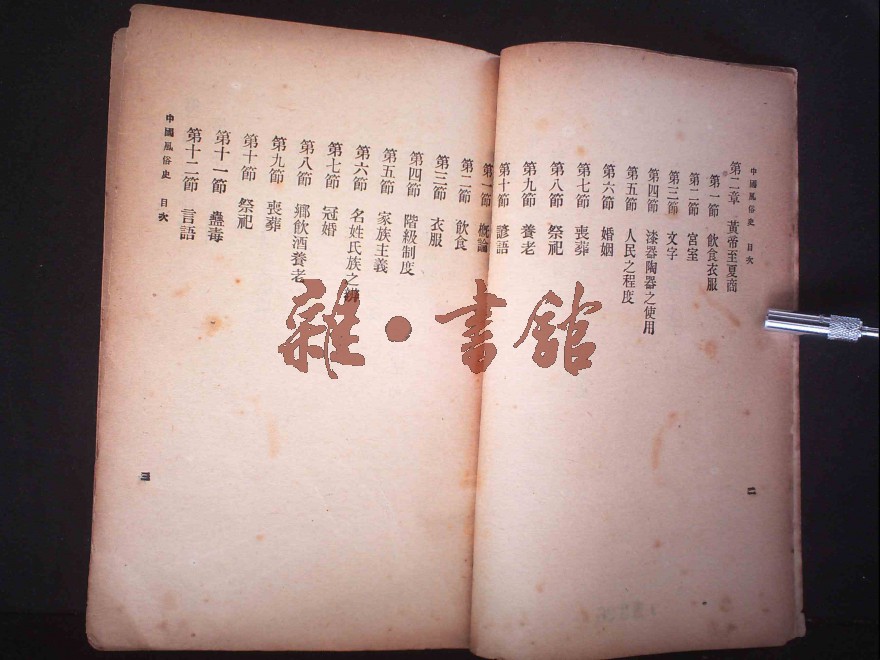 中國風俗史 目次
第二章 黃帝至夏商
第一節 飲食衣服
第二節 宮室
第三節 文字
第四節 漆器陶器之使用
第五節 人民之程度
第六節 婚姻
第七節 喪葬
第八節 祭祀
第九節 養老
第十節 諺語
二
第一節 概論
第二節 飲食
第三節 衣服
第四節 階級制度
第五節 家族主義
第六節 名姓氏族之
第七節 冠婚
第八節 鄉飲酒養老
第九節 喪葬
第十節 祭祀
第十一節 蠱毒
第十二節 言語
中國風俗史 目次
三
雜·書館